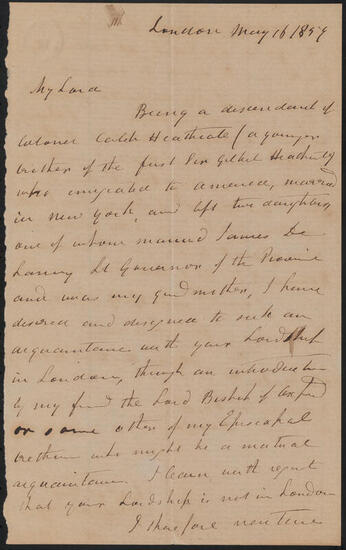 London May 16 1859
My Lord
Being a descendant of
Colonel Caleb Heathcote (a younger
brother of the first Sir Gilbert Heathcote)
who emigrated to America, married
in New York, and left two daughters,
one of whom married James De
Lancey Lt Governor of the Province
and was my grdmother, I have
desired and designed to seek an
acquaintance with your Lordship
in London, through an introduction
by my friend the Lord Bishop of Oxford
or some other of my Episcopal
brethren who might be a mutual
acquaintance. I learn with regret
that your Lordship is not in London
I therefore venture